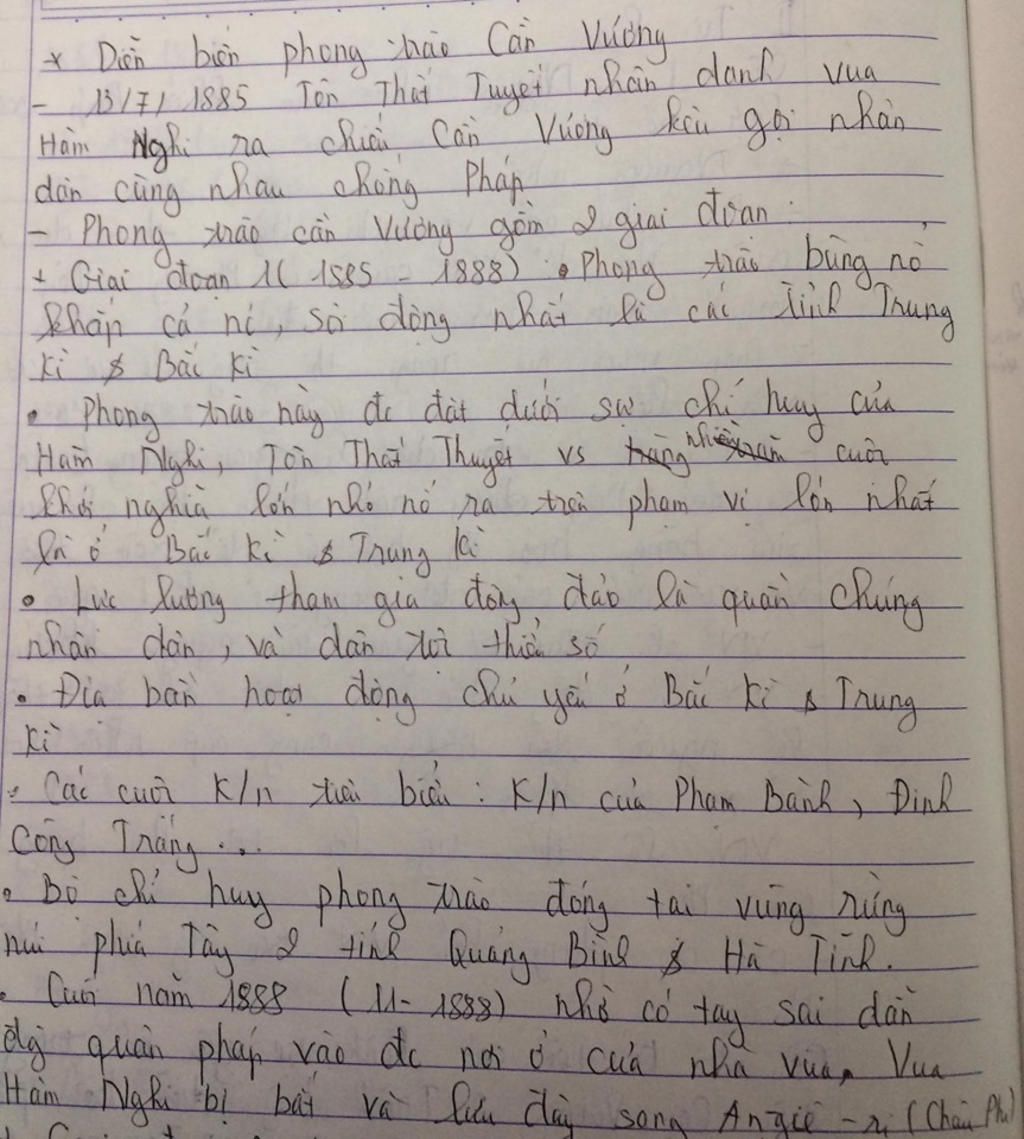 * Diễn biến phong trào Cần Vương
- 13/7/1885 Tôn Thất Tuyết nhân danh vua
Hàm Nghi ra chiếu Cần Vương kêu gọi nhân
dân cùng nhau chống Pháp
- Phong trào cần Vương gồm 2 giai đoạn:
+ Giai đoạn 1( 1885 - 1888) • Phong trào bùng nổ
khắp cả nc, sôi động nhất là các tỉnh Trung
kì & Bắc kì
• Phong trào này đc đặt dưới sự chỉ huy của
Hàm Nghi, Tôn Thất Thuyết vs nhiều cuộc
khởi nghĩa lớn nhỏ nổ ra trên phạm vi lớn nhất
là ở Bắc kì & Trung kì
• Lực lượng tham gia đông đảo là quần chúng
nhân dân, và dân tộc thiểu số
• Địa bàn hoạt động chủ yếu ở Bắc kì & Trung
kì
• Các cuộc k/n tiêu biểu : k/n của Phạm Bành, Đinh
Công Tráng...
• Bộ chỉ huy phong trào đóng tại vùng rừng
núi phía Tây 2 tỉnh Quảng Bình & Hà Tĩnh.
• Cuối năm 1888 (11-1888) nhờ có tay sai dẫn
đg quân pháp vào đc nơi ở của nhà vua. Vua
Hàm Nghi bị bắt và lưu đày sang Angiê-ri (Châu Phi)